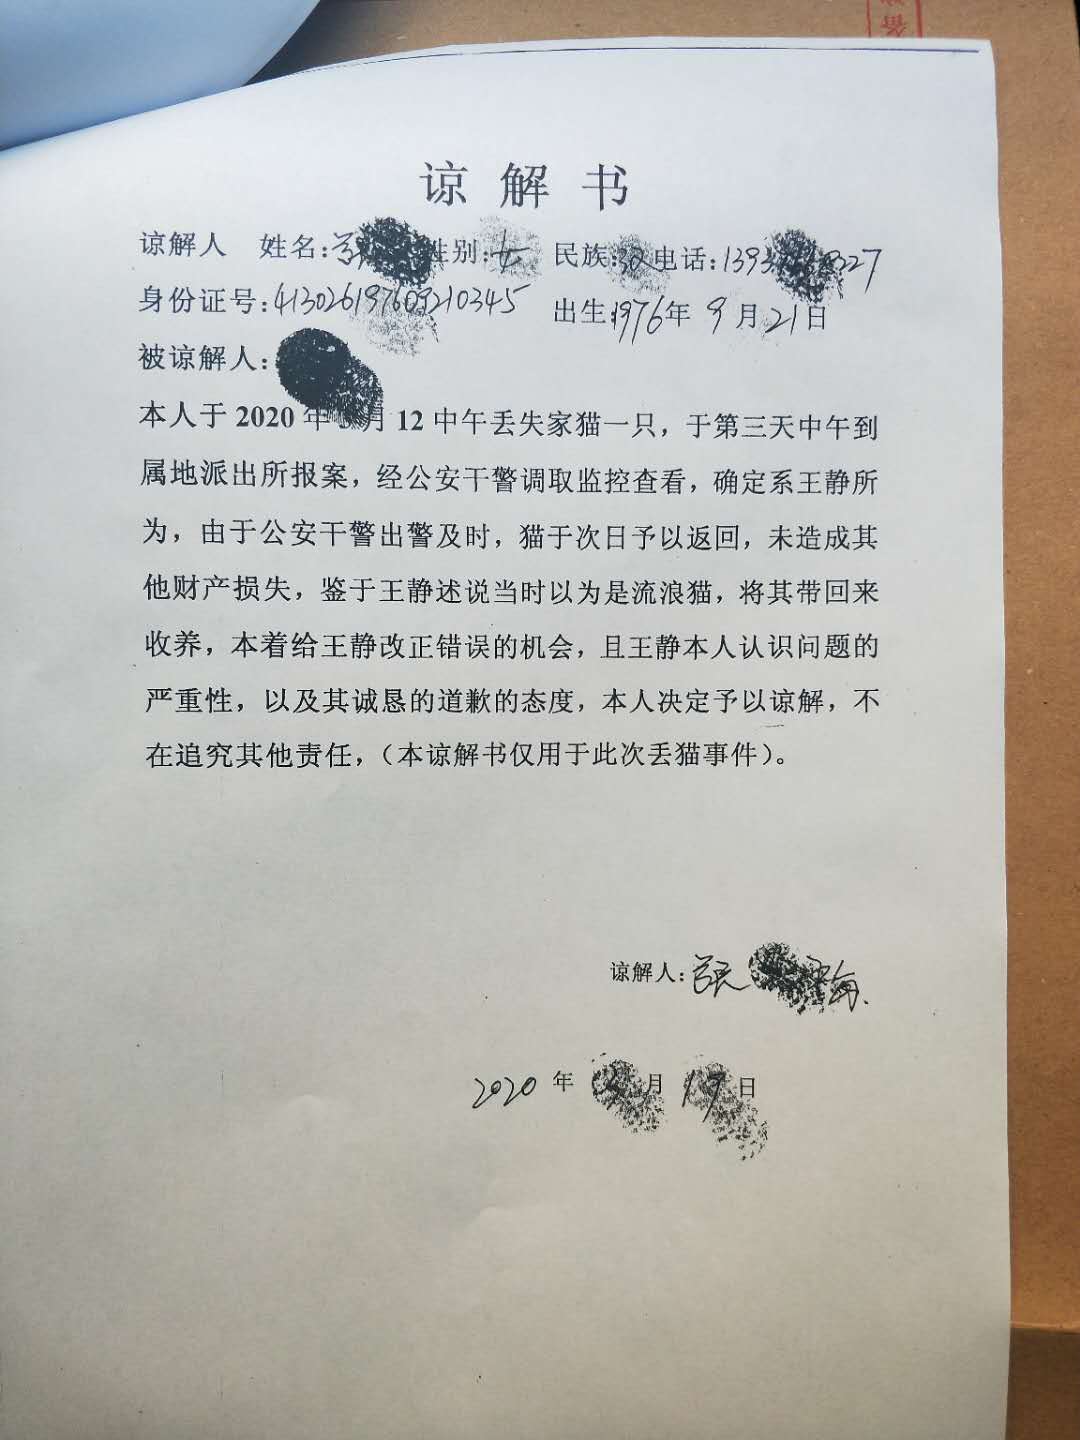 谅解书
谅解人 姓名: 性别:女 民族:汉 电话:
身份证号:413026197609210345 出生:1976年9月21日
被谅解人:
本人于2020年 月12中午丢失家猫一只，于第三天中午到
属地派出所报案，经公安干警调取监控查看，确定系王静所
为，由于公安干警出警及时，猫于次日予以返回，未造成其
他财产损失，鉴于王静述说当时以为是流浪猫，将其带回来
收养，本着给王静改正错误的机会，且王静本人认识问题的
严重性，以及其诚恳的道歉的态度，本人决定予以谅解，不
在追究其他责任，（本谅解书仅用于此次丢猫事件）。
谅解人:张
2020年 月17日